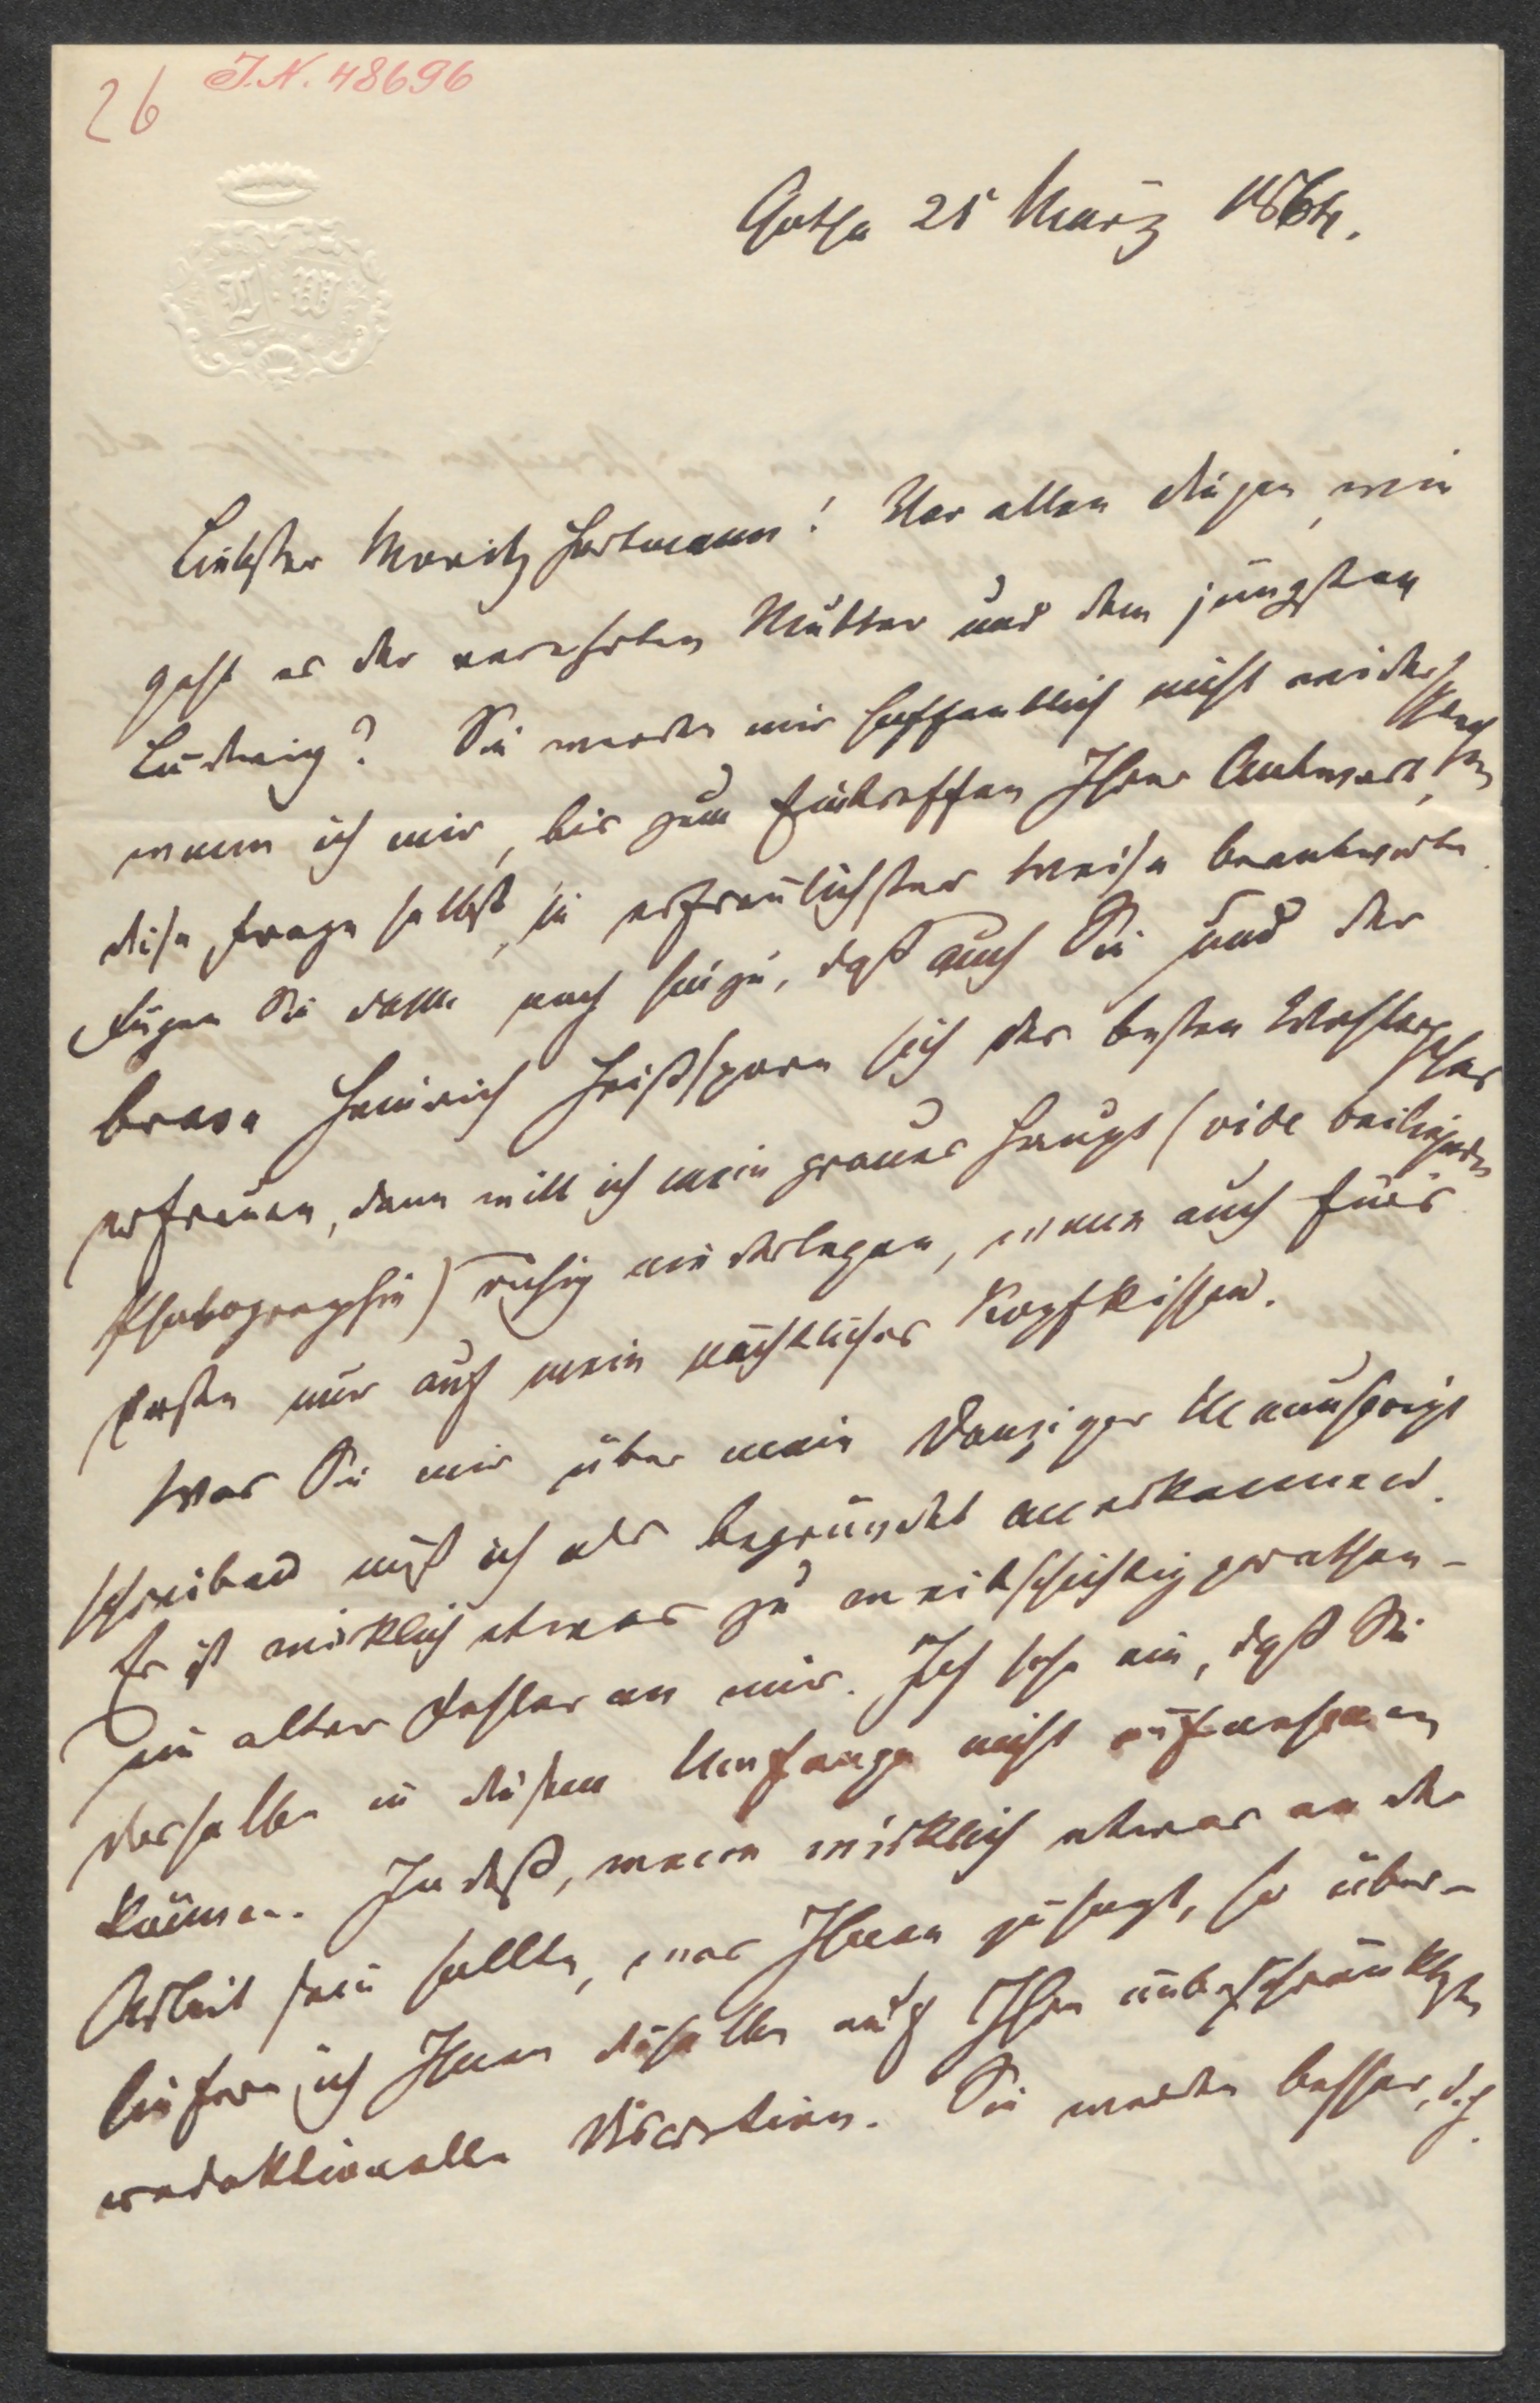 26 J.N. 48696
L W
Gotha 25 März 1864.
Liebster Moritz Hartmann! Vor allen Dingen, wie
geht es der verehrten Mutter und dem jüngsten
Ludwig? Sie werden mir hoffentlich nicht widersprechen
wenn ich mir, bis zum Eintreffen Ihrer Antwort,
diese Frage selbst, in erfreulichster Weise beantworte.
Fügen Sie dann noch hinzu, daß auch Sie und der
brave Heinrich Heißsporn sich des besten Wohlergehens
erfreuen, dann will ich mein graues Haupt (vide beiliegende
Photographie) ruhig niederlegen, wenn auch für's
Erste nur auf mein nächtliches Kopfkissen.
Was Sie mir über mein Danziger Manuscript
schreiben muß ich als begründet anerkennen.
Es ist wirklich etwas zu weitschichtig gerathen –
ein alter Fehler an mir. Ich sehe ein, daß Sie
dasselbe in diesem Umfange nicht aufnehmen
können. Indeß, wenn wirklich etwas an der
Arbeit sein sollte, was Ihnen zusagt, so über-
liefere ich Ihnen dieselbe auf Ihre unbeschränkteste
redaktionelle Discretion. Sie werden besser, d. h.